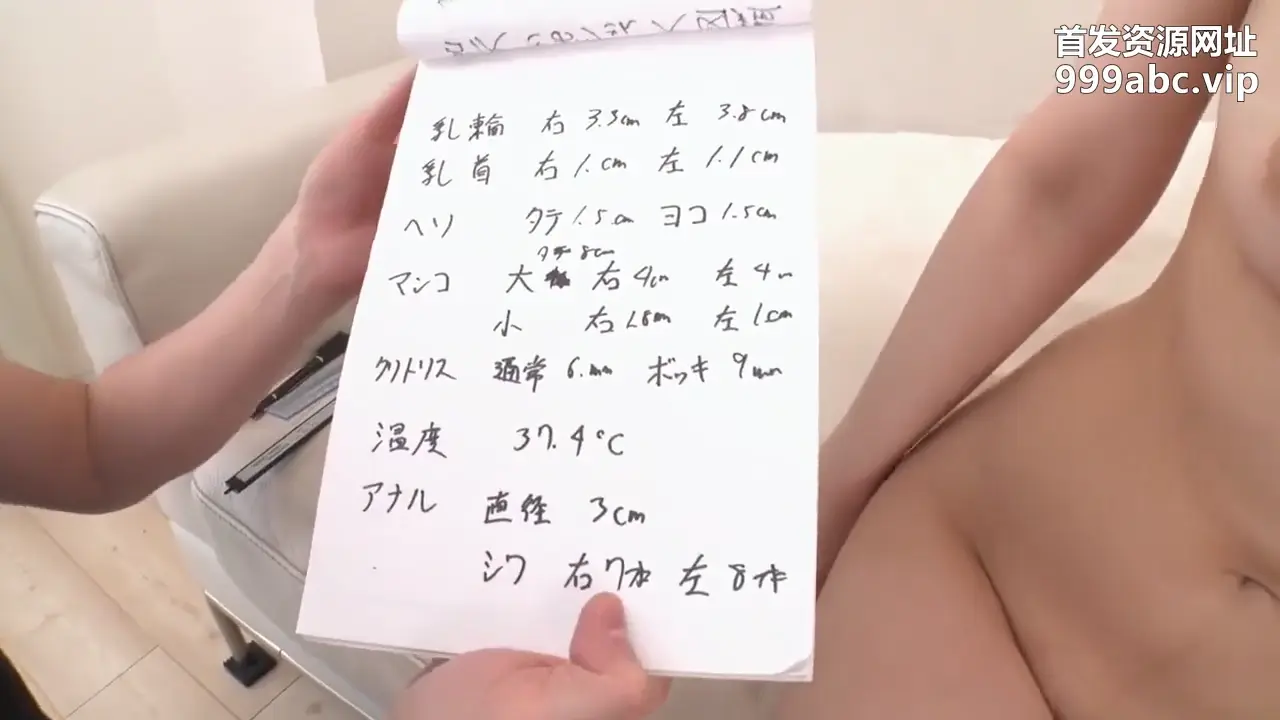 首发资源网址
999abc.vip
乳輪 右 3.5cm 左 3.8cm
乳首 右 1.cm 左 1.1cm
ヘソ タテ 1.5cm ヨコ 1.5cm
タテ 8cm
マンコ 大 右 4cm 左 4cm
小 右 1.8cm 左 1cm
クリトリス 通常 6.mm ボッキ 9mm
温度 37.4℃
アナル 直径 3cm
シワ 右 7本 左 8本